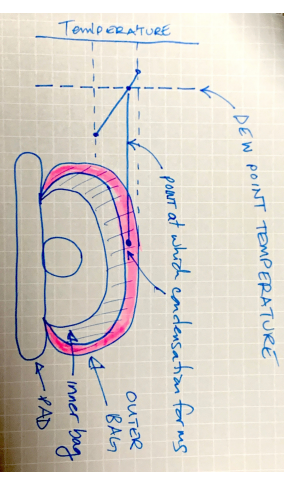 TEMPERATURE
DEW POINT TEMPERATURE
point at which condensation forms
OUTER
BAG
inner bag
PAD